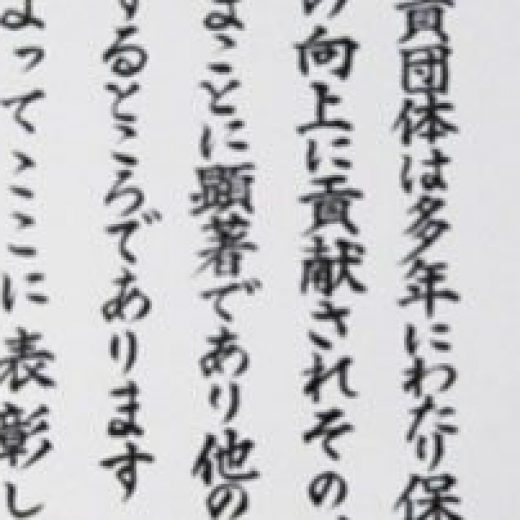 貴団体は多年にわたり保
の向上に貢献されその
まことに顕著であり他の
するところであります
よってここに表彰し